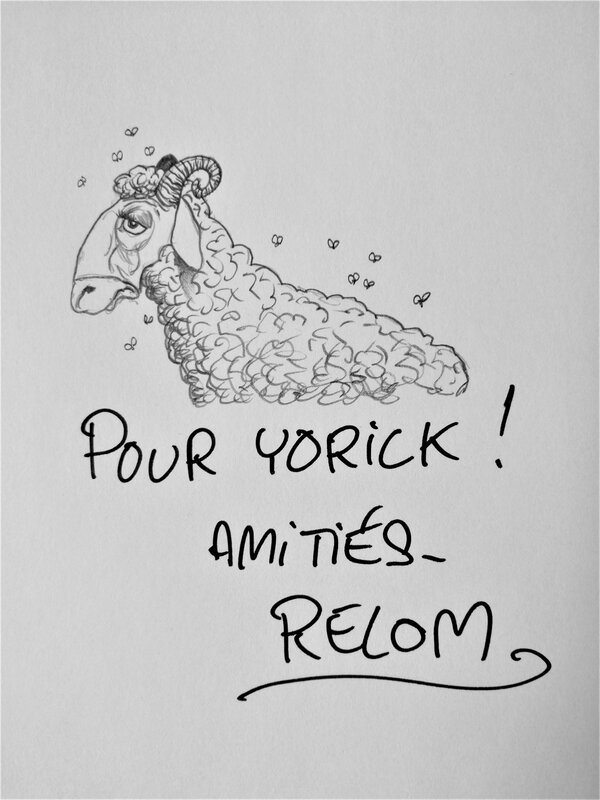 POUR YORICK !
AMITIÉS_
RELOM